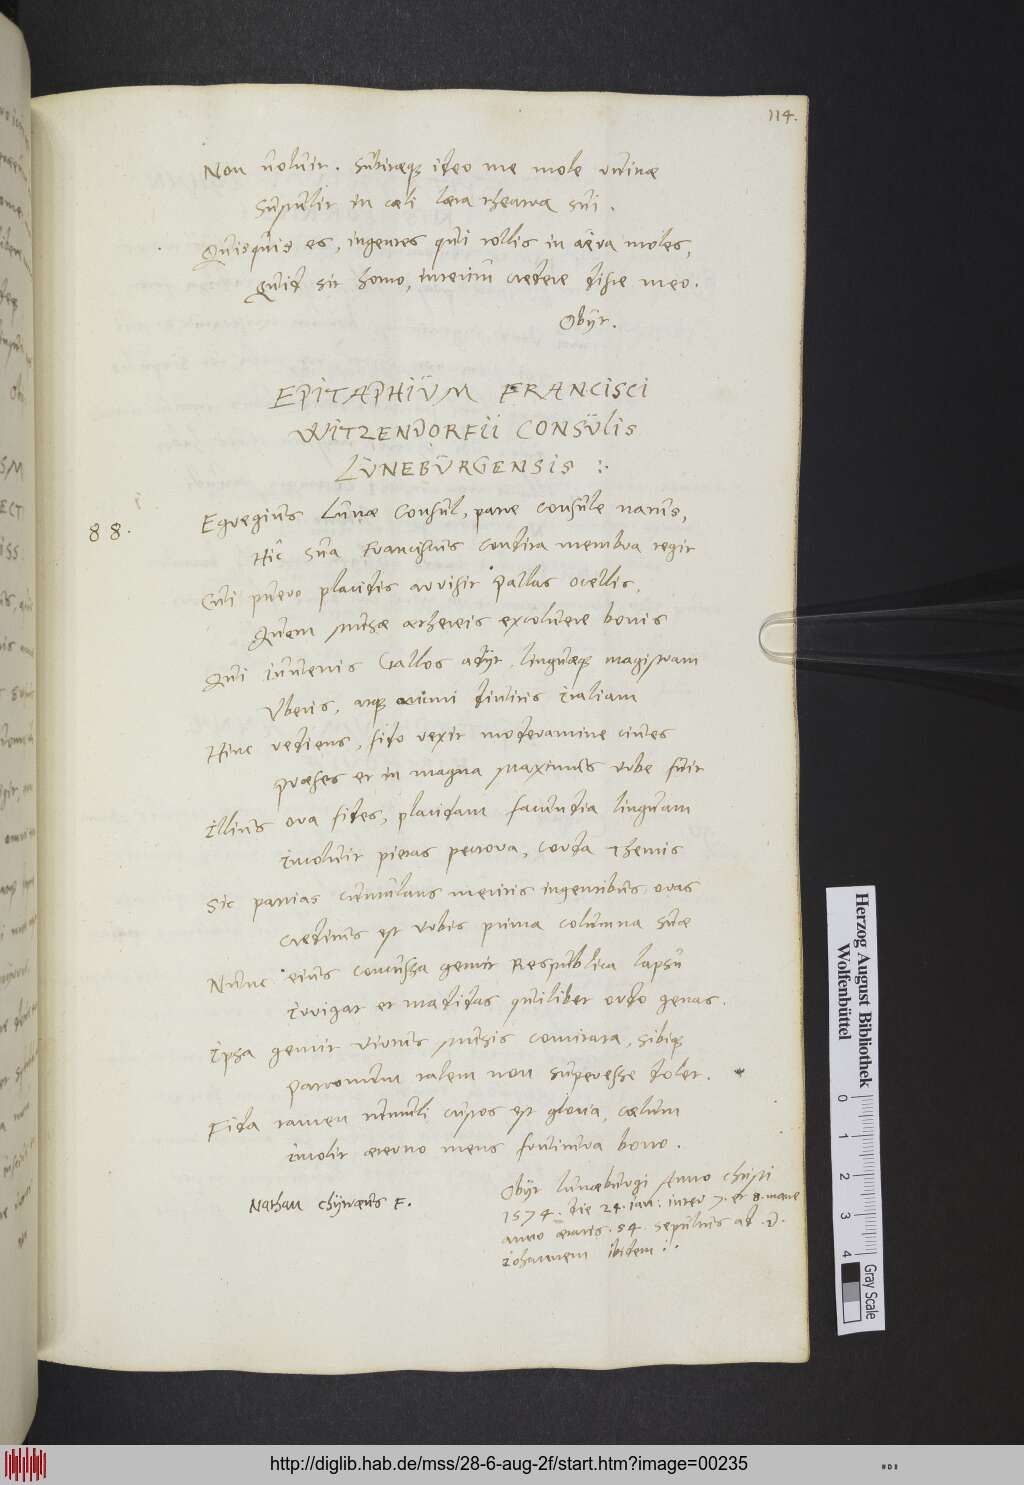 114.
Non voluit. Subitaeq3 ideo me mole ruinae
Sustulit in caeli laeta theatra sui.
Quisquis es, ingentes qui tollis in aëra moles,
Quid sit homo, interitu credere disce meo.
Obijt.
EPITAPHIUM FRANCISCI
WITZENDORFII CONSULIS
LUNEBURGENSIS :.
88.
Egregius Lunae Consul, patre consule natus,
Hic sua Franciscus condita membra tegit
Cui puero placidis arrisit Pallas ocellis,
Quem Musae aethereis excoluere bonis
Qui iuvenis Gallos adijt, linguaeq3 magistram
Uberis, atq3 animi divitis Italiam
Hinc rediens, fido rexit moderamine cives
Praeses et in magna Maximus urbe fuit
Illius ora fides, placidam facundia linguam
Incoluit pietas pectora, corda Themis
Sic patrias cumulans meritis ingentibus oras
Creditus est urbis prima columna suae
Nunc eius concussa gemit Respublica lapsu
Irrigat et madidas quilibet ordo genas.
Ipsa gemit Virtus Musis comitata, sibiq3
Patronum talem non superesse dolet.
Fida tamen tumuli custos est gloria, caelum
Incolit aeterno mens fruitura bono.
Nathan Chytraeus F.
Obijt Lunaeburgi Anno Christi
1574. die 24. Ian: inter 7. et 8. mane
anno aetatis. 54. Sepultus ad. D.
Iohannem ibidem :.
Herzog August Bibliothek
Wolfenbüttel
0 1 2 3 4
Gray Scale
http://diglib.hab.de/mss/28-6-aug-2f/start.htm?image=00235